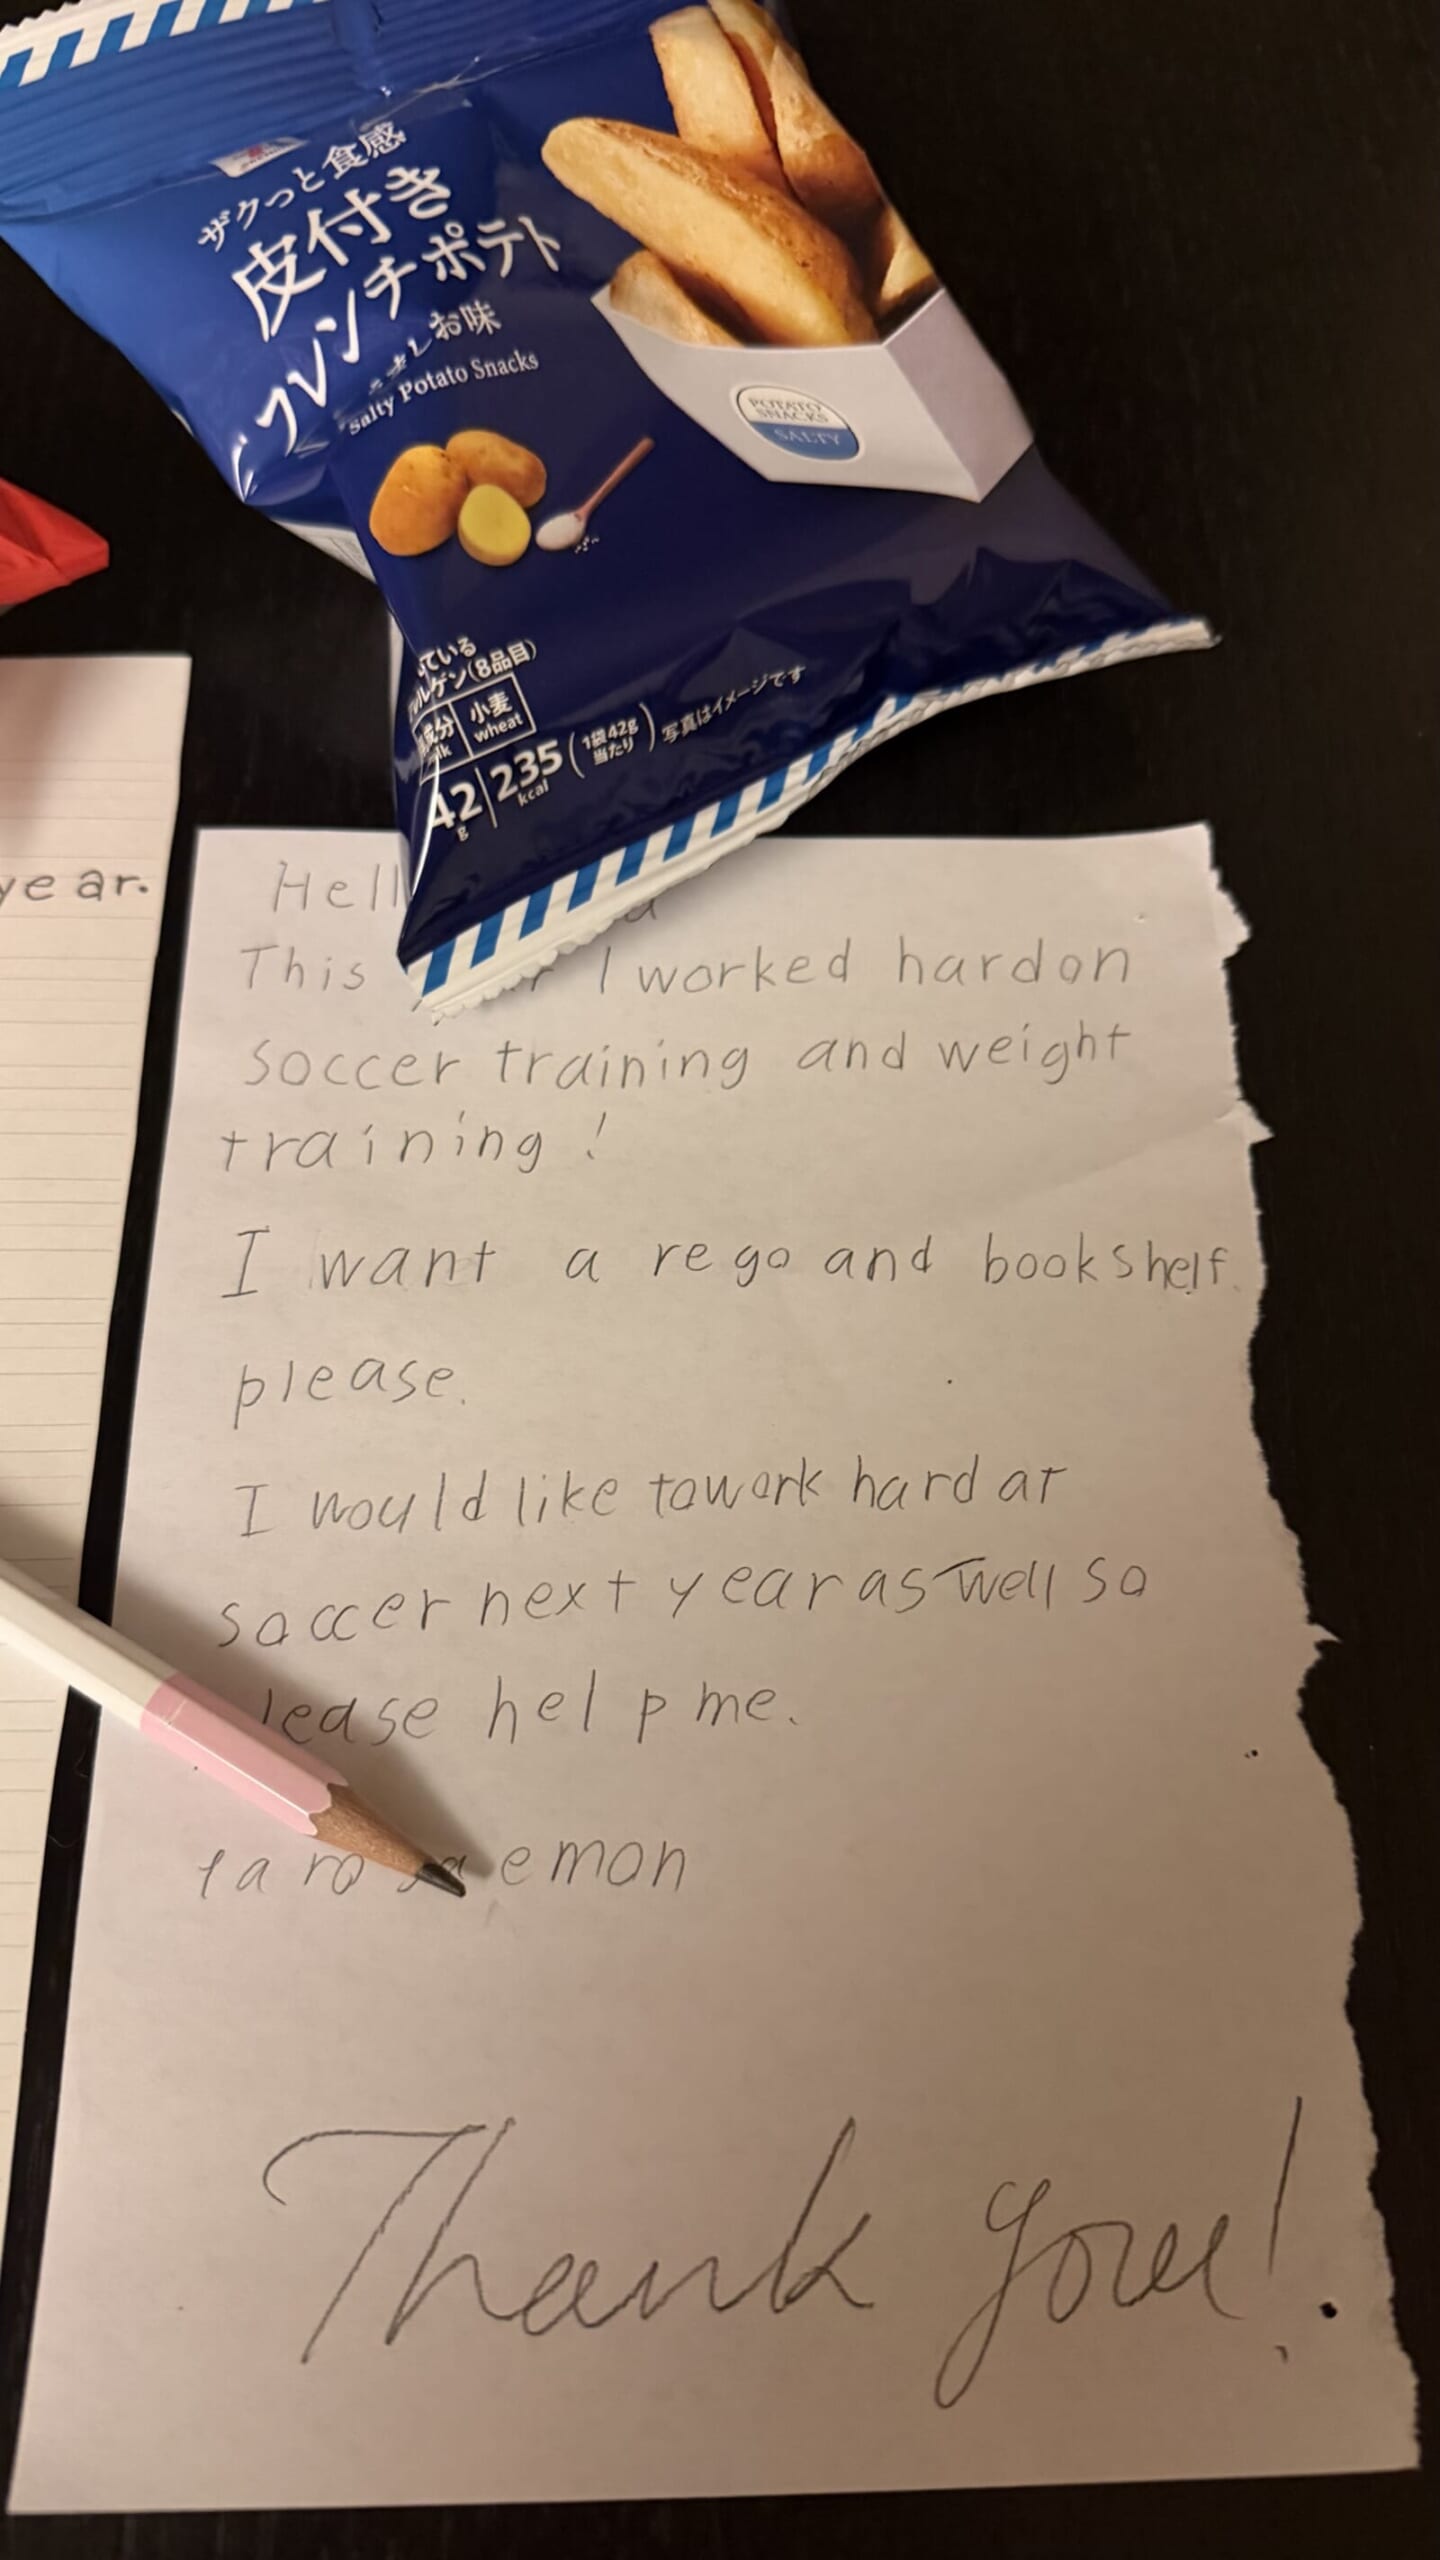 ザクっと食感
皮付き
フレンチポテト
しお味
Salty Potato Snacks
POTATO
SNACKS
SALTY
ている
ルゲン(8品目)
小麦
wheat
42
g
235
kcal
(1袋42g
当たり)
写真はイメージです
year.
Hell
This I worked hardon
soccer training and weight
training!
I want a rego and bookshelf
please.
I would like towork hard at
soccer next year as well so
lease help me.
taro emon
Thank you!